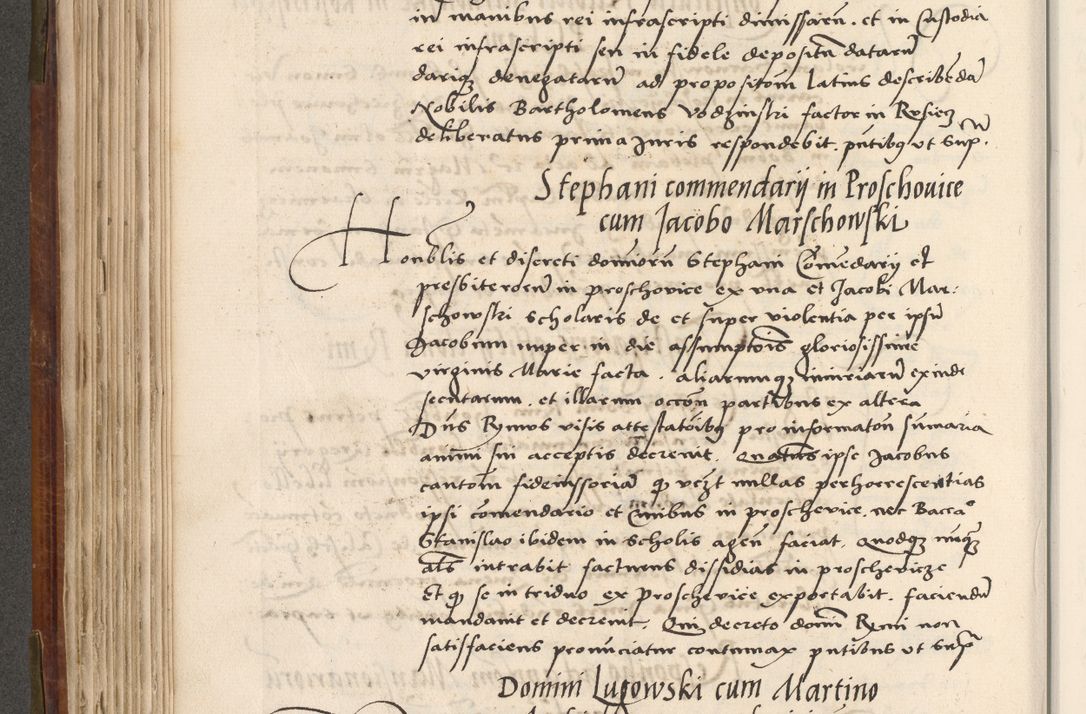 in manibus rei infrascripti dimissarum. et in Custodia
rei infrascripti seu in fidele depositum datarum
darique denegatarum ad propositom latius describendam
Nobilis Bartholomeus Vodzinski factor in
deliberatus prima Juris respondebit. pntibus ut Supra.
Stephani commendarij in Proschouice
cum Jacobo Marschowski
Honblis et discreti domiorum Stephani Comedarij et
presbiterorum in proschovice ex una et Jacobi Mar:
schowski scholaris de et super violentia per ipsum
Jacobum nuper in die assumptois gloriosissime
virginis Marie facta. aliarumque iniuriarum exinde
secutarum. et illarum occon partibus ex altera
Dns Rymus visis attestatoibus pro informaton sumaria
animi sui acceptis decrevit. Quatenus ipse Jacobus
cautom fideiussoriam quod nullas perhorrescentias
ipsi comendario et in proschevice. nec Bacca
Stanislao ibidem in scholis agen faciat. Quodque nunquam
als intrabit factuens dissidias in proschevicze
Et quod se in triduo ex proschevice exportabit. faciendum
mandavit et decrevit. Qui decreto domi Rymi non
satisfaciens pronunciatur contumax pntibus ut Supra
Domini Lugowski cum Martino